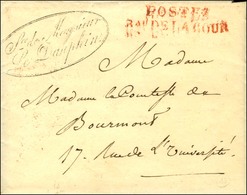 POSTES
Bau DE LA COUR
Dauphin
Madame
Madame la Comtesse de
Bourmont
17. Rue de l'Université.